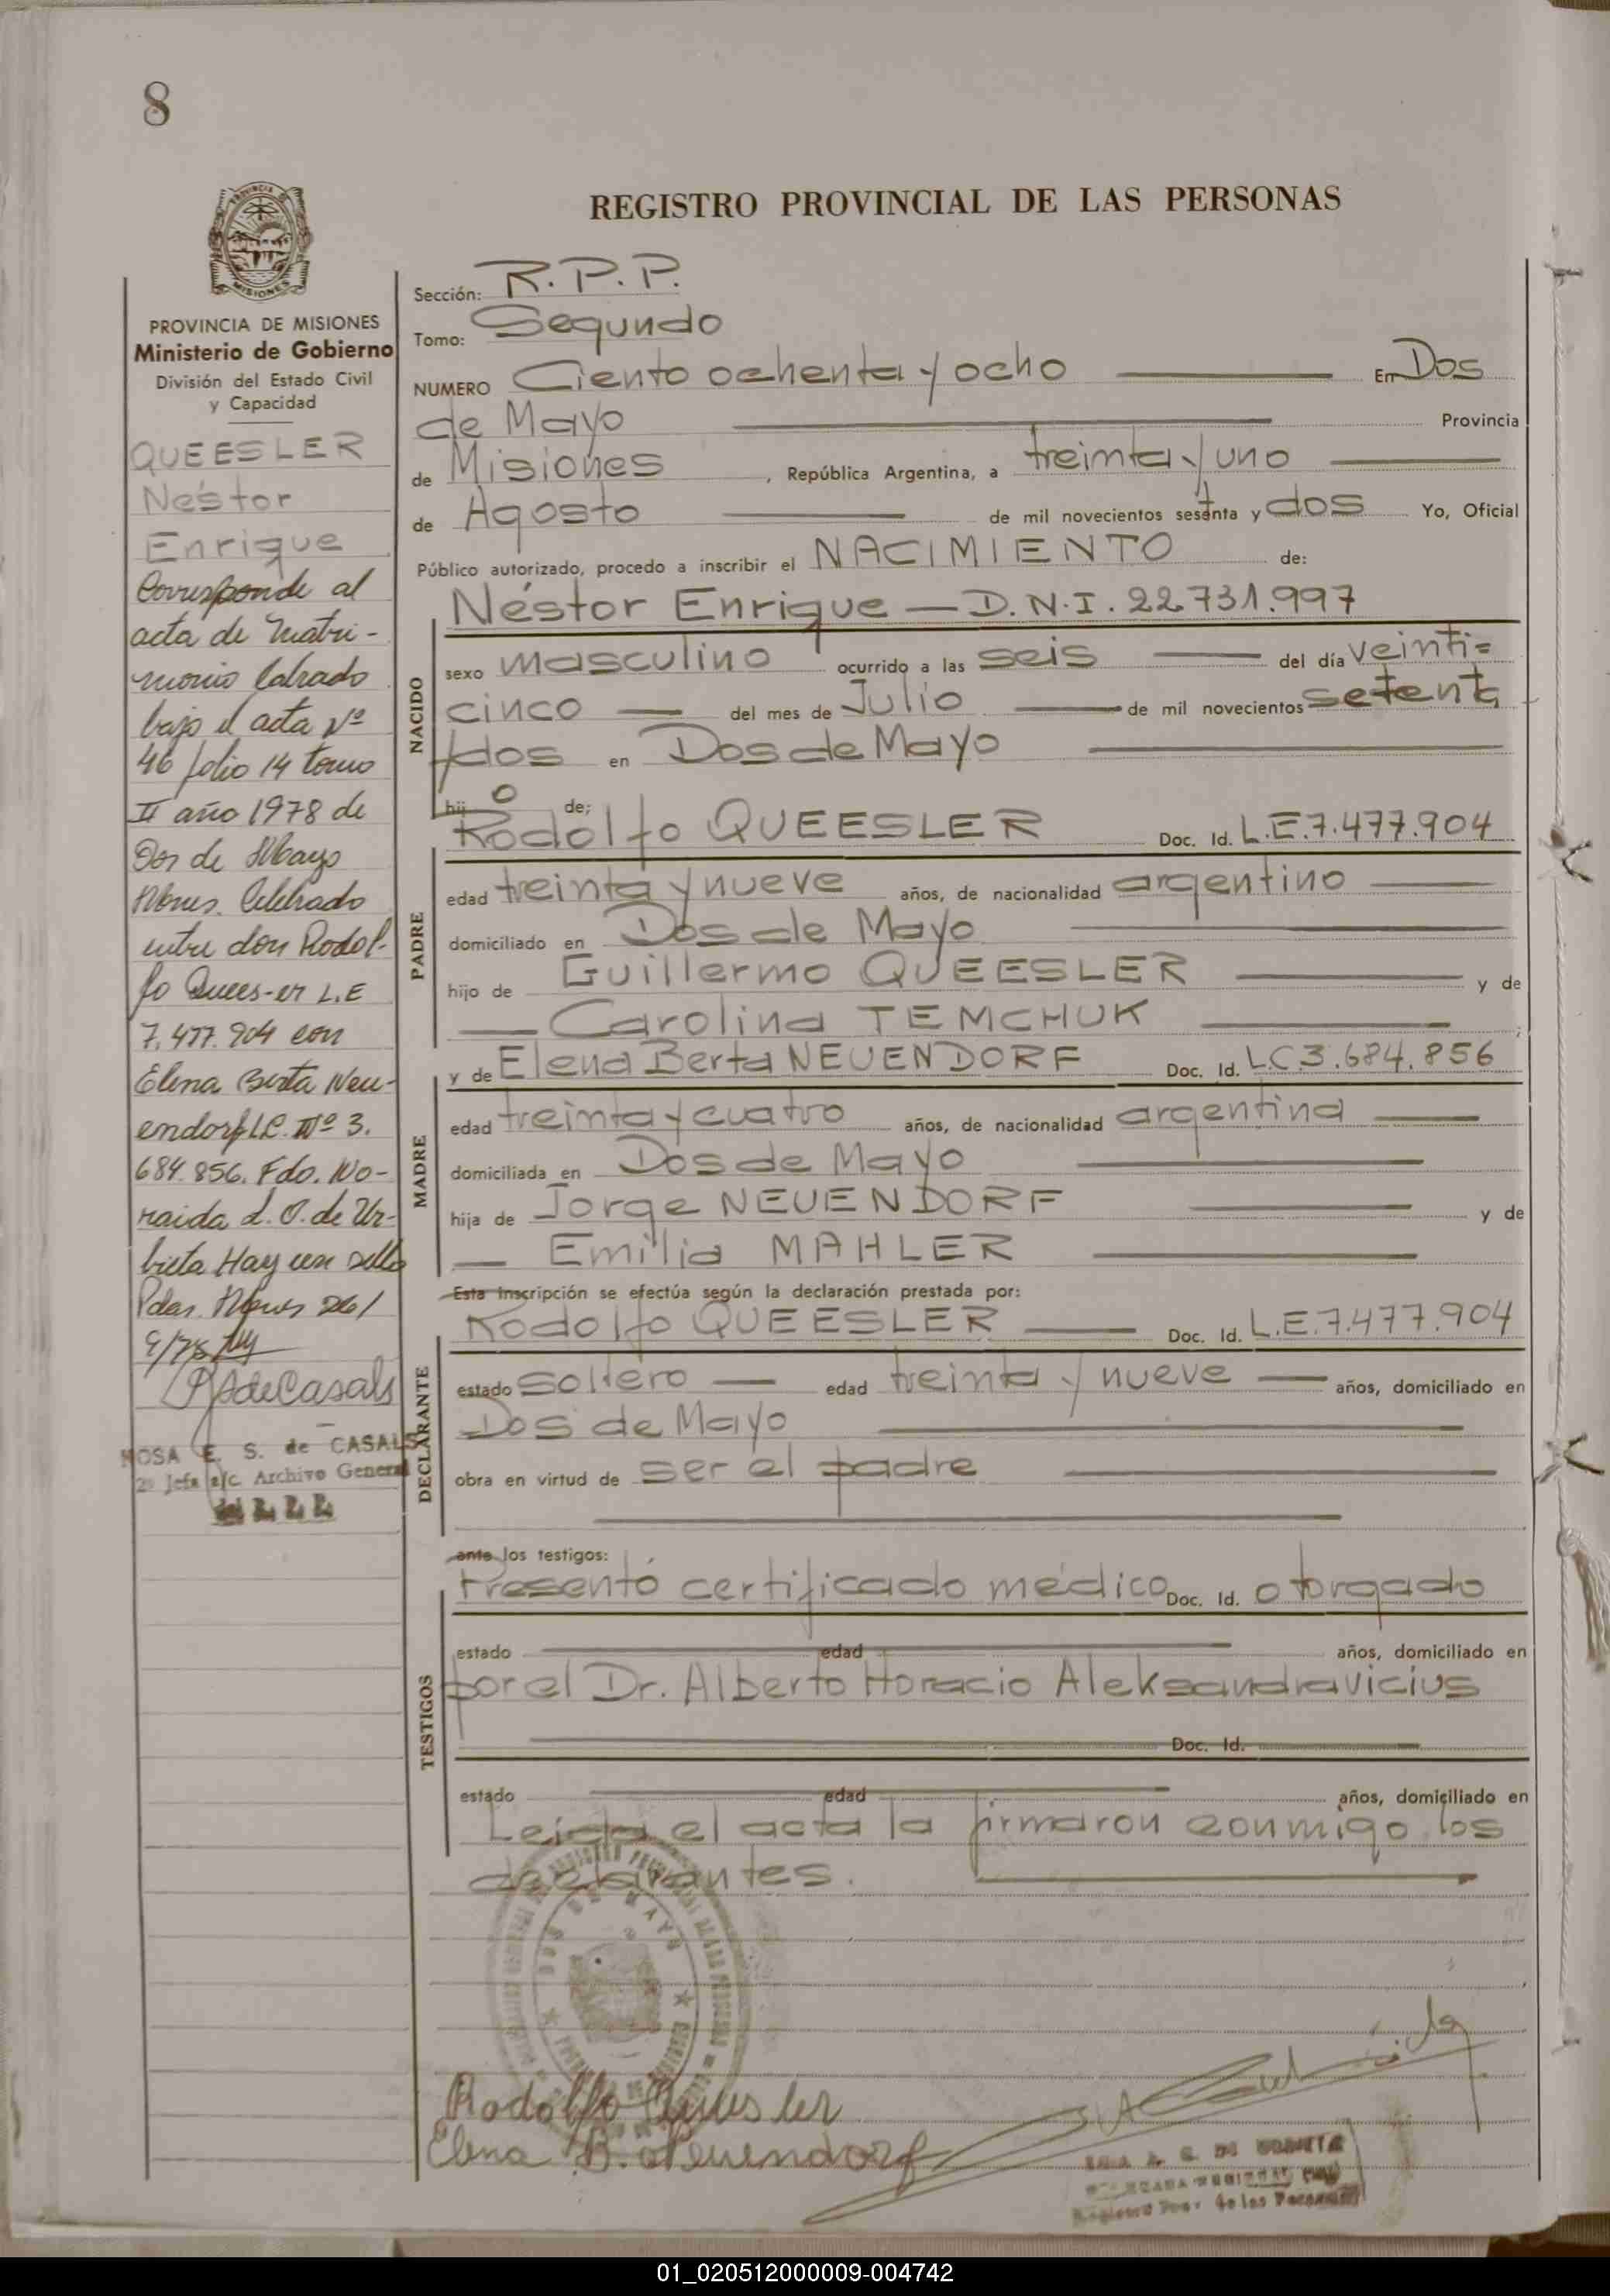 8
REGISTRO PROVINCIAL DE LAS PERSONAS
MISIONES
PROVINCIA DE MISIONES
Ministerio de Gobierno
División del Estado Civil
y Capacidad
QUEESLER
Néstor
Enrique
Corresponde al
acta de Matri-
monio labrado
bajo el acta Nº
46 folio 14 tomo
II año 1978 de
Dos de Mayo
Mnes. Celebrado
entre don Rodol-
fo Quees-er L.E
7.477.904 con
Elena Berta Neu-
endorf L.C. Nº 3.
684.856. Fdo. No-
raida d. O. de Ur-
bieta Hay un sello
Pdas. Mnes
RAdeCasals
ROSA E. S. de CASALS
2º Jefa a/c. Archivo General
Sección: R.P.P.
Tomo: Segundo
NUMERO Ciento ochenta y ocho En Dos
de Mayo Provincia
de Misiones , República Argentina, a treinta y uno
de Agosto de mil novecientos setenta y dos Yo, Oficial
Público autorizado, procedo a inscribir el NACIMIENTO de:
Néstor Enrique — D.N.I. 22.731.997
NACIDO
sexo masculino ocurrido a las seis del día veinti=
cinco del mes de Julio de mil novecientos setenta
y dos en Dos de Mayo
hijo de:
Rodolfo QUEESLER Doc. Id. L.E.7.477.904
PADRE
edad treinta y nueve años, de nacionalidad argentino
domiciliado en Dos de Mayo
hijo de Guillermo QUEESLER y de
Carolina TEMCHUK ;
y de Elena Berta NEUENDORF Doc. Id. L.C.3.684.856
MADRE
edad treinta y cuatro años, de nacionalidad argentina
domiciliada en Dos de Mayo
hija de Jorge NEUENDORF y de
Emilia MAHLER
Esta inscripción se efectúa según la declaración prestada por:
Rodolfo QUEESLER Doc. Id. L.E.7.477.904
DECLARANTE
estado soltero edad treinta y nueve años, domiciliado en
Dos de Mayo
obra en virtud de ser el padre
ante los testigos:
Presentó certificado médico Doc. Id. otorgado
TESTIGOS
estado edad años, domiciliado en
por el Dr. Alberto Horacio Aleksandravicius
Doc. Id.
estado edad años, domiciliado en
Leida el acta la firmaron conmigo los
declarantes.
DOS DE MAYO
Rodolfo Queesler
Elena B. Neuendorf
01_020512000009-004742